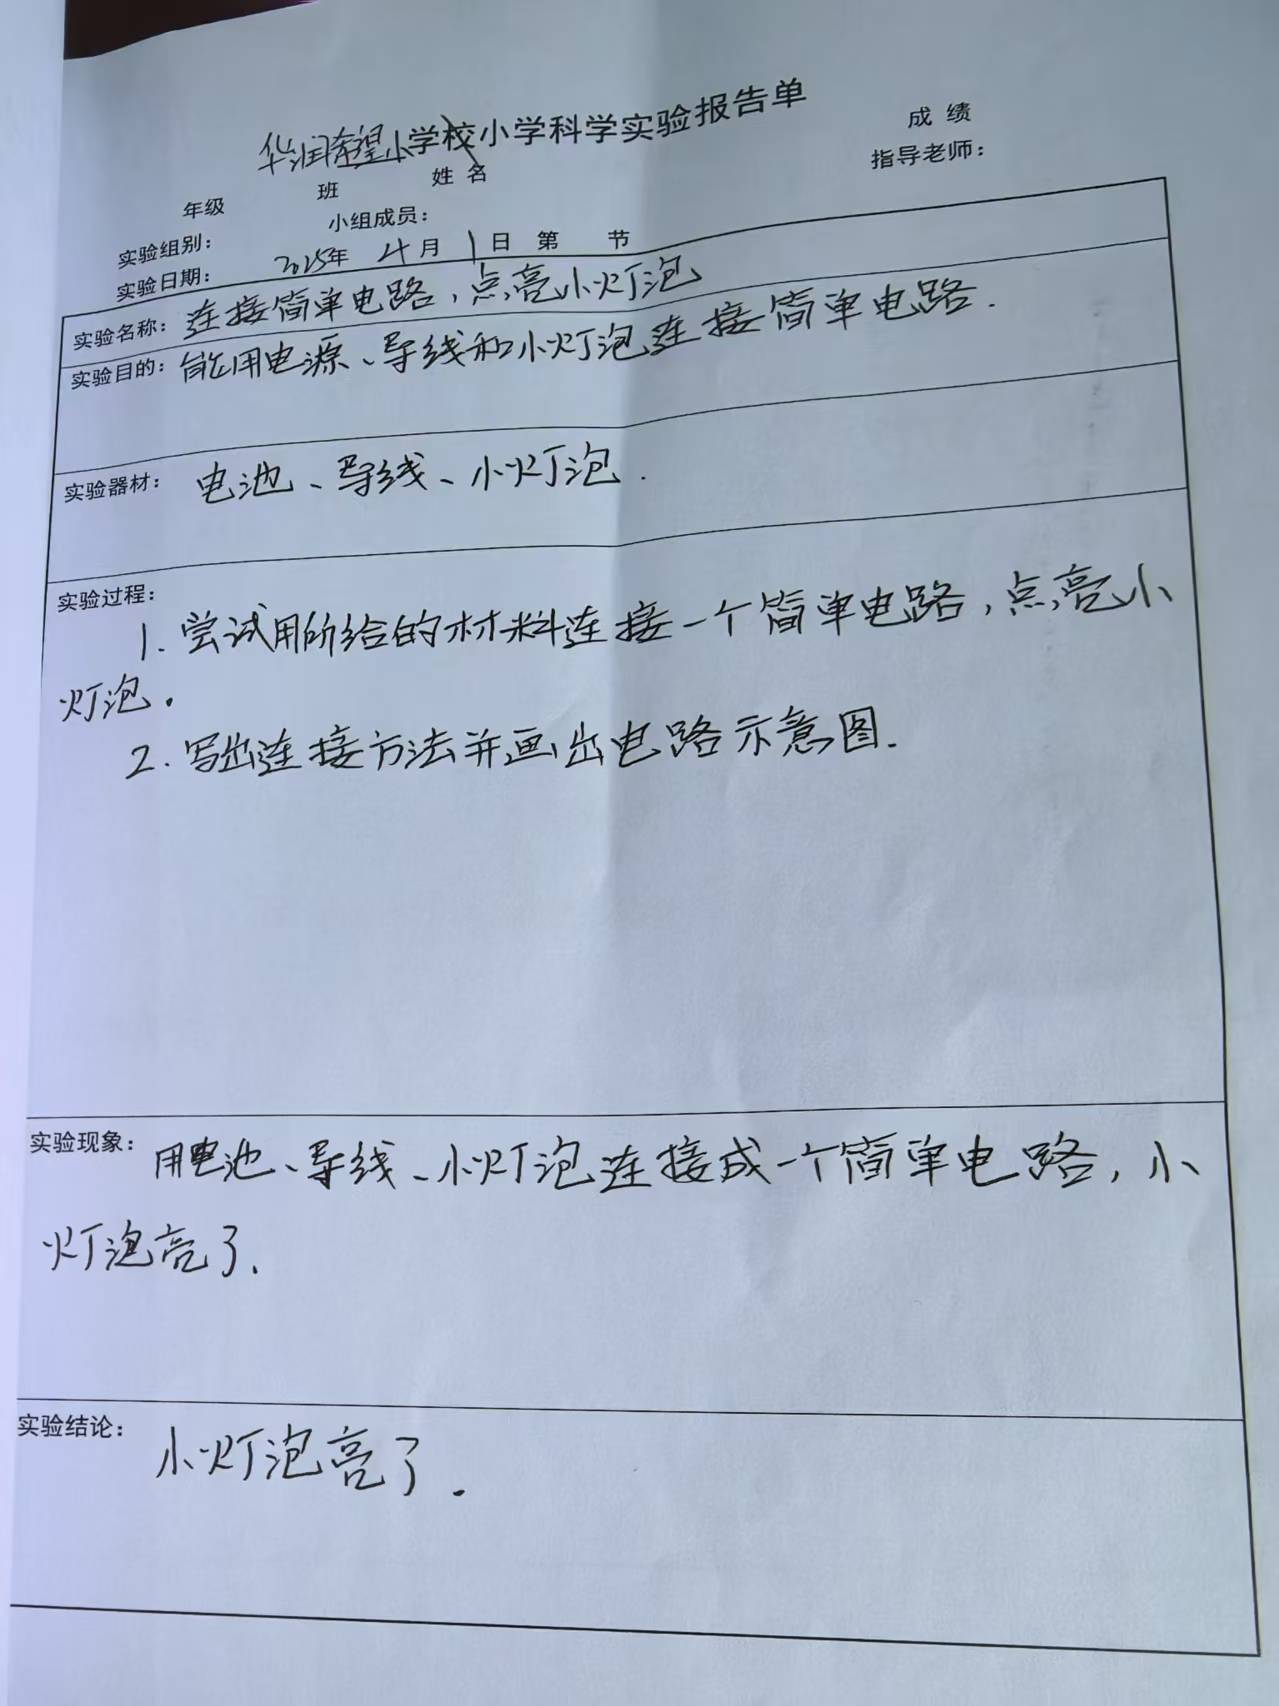 华润希望小学校小学科学实验报告单
成 绩
年级 班 姓 名 指导老师：
实验组别： 小组成员：
实验日期： 2025年 4月 1日 第 节
实验名称：连接简单电路，点亮小灯泡
实验目的：能用电源、导线和小灯泡连接简单电路.
实验器材： 电池、导线、小灯泡.
实验过程：
1. 尝试用所给的材料连接一个简单电路，点亮小
灯泡.
2. 写出连接方法并画出电路示意图.
实验现象： 用电池、导线、小灯泡连接成一个简单电路，小
灯泡亮了.
实验结论： 小灯泡亮了.